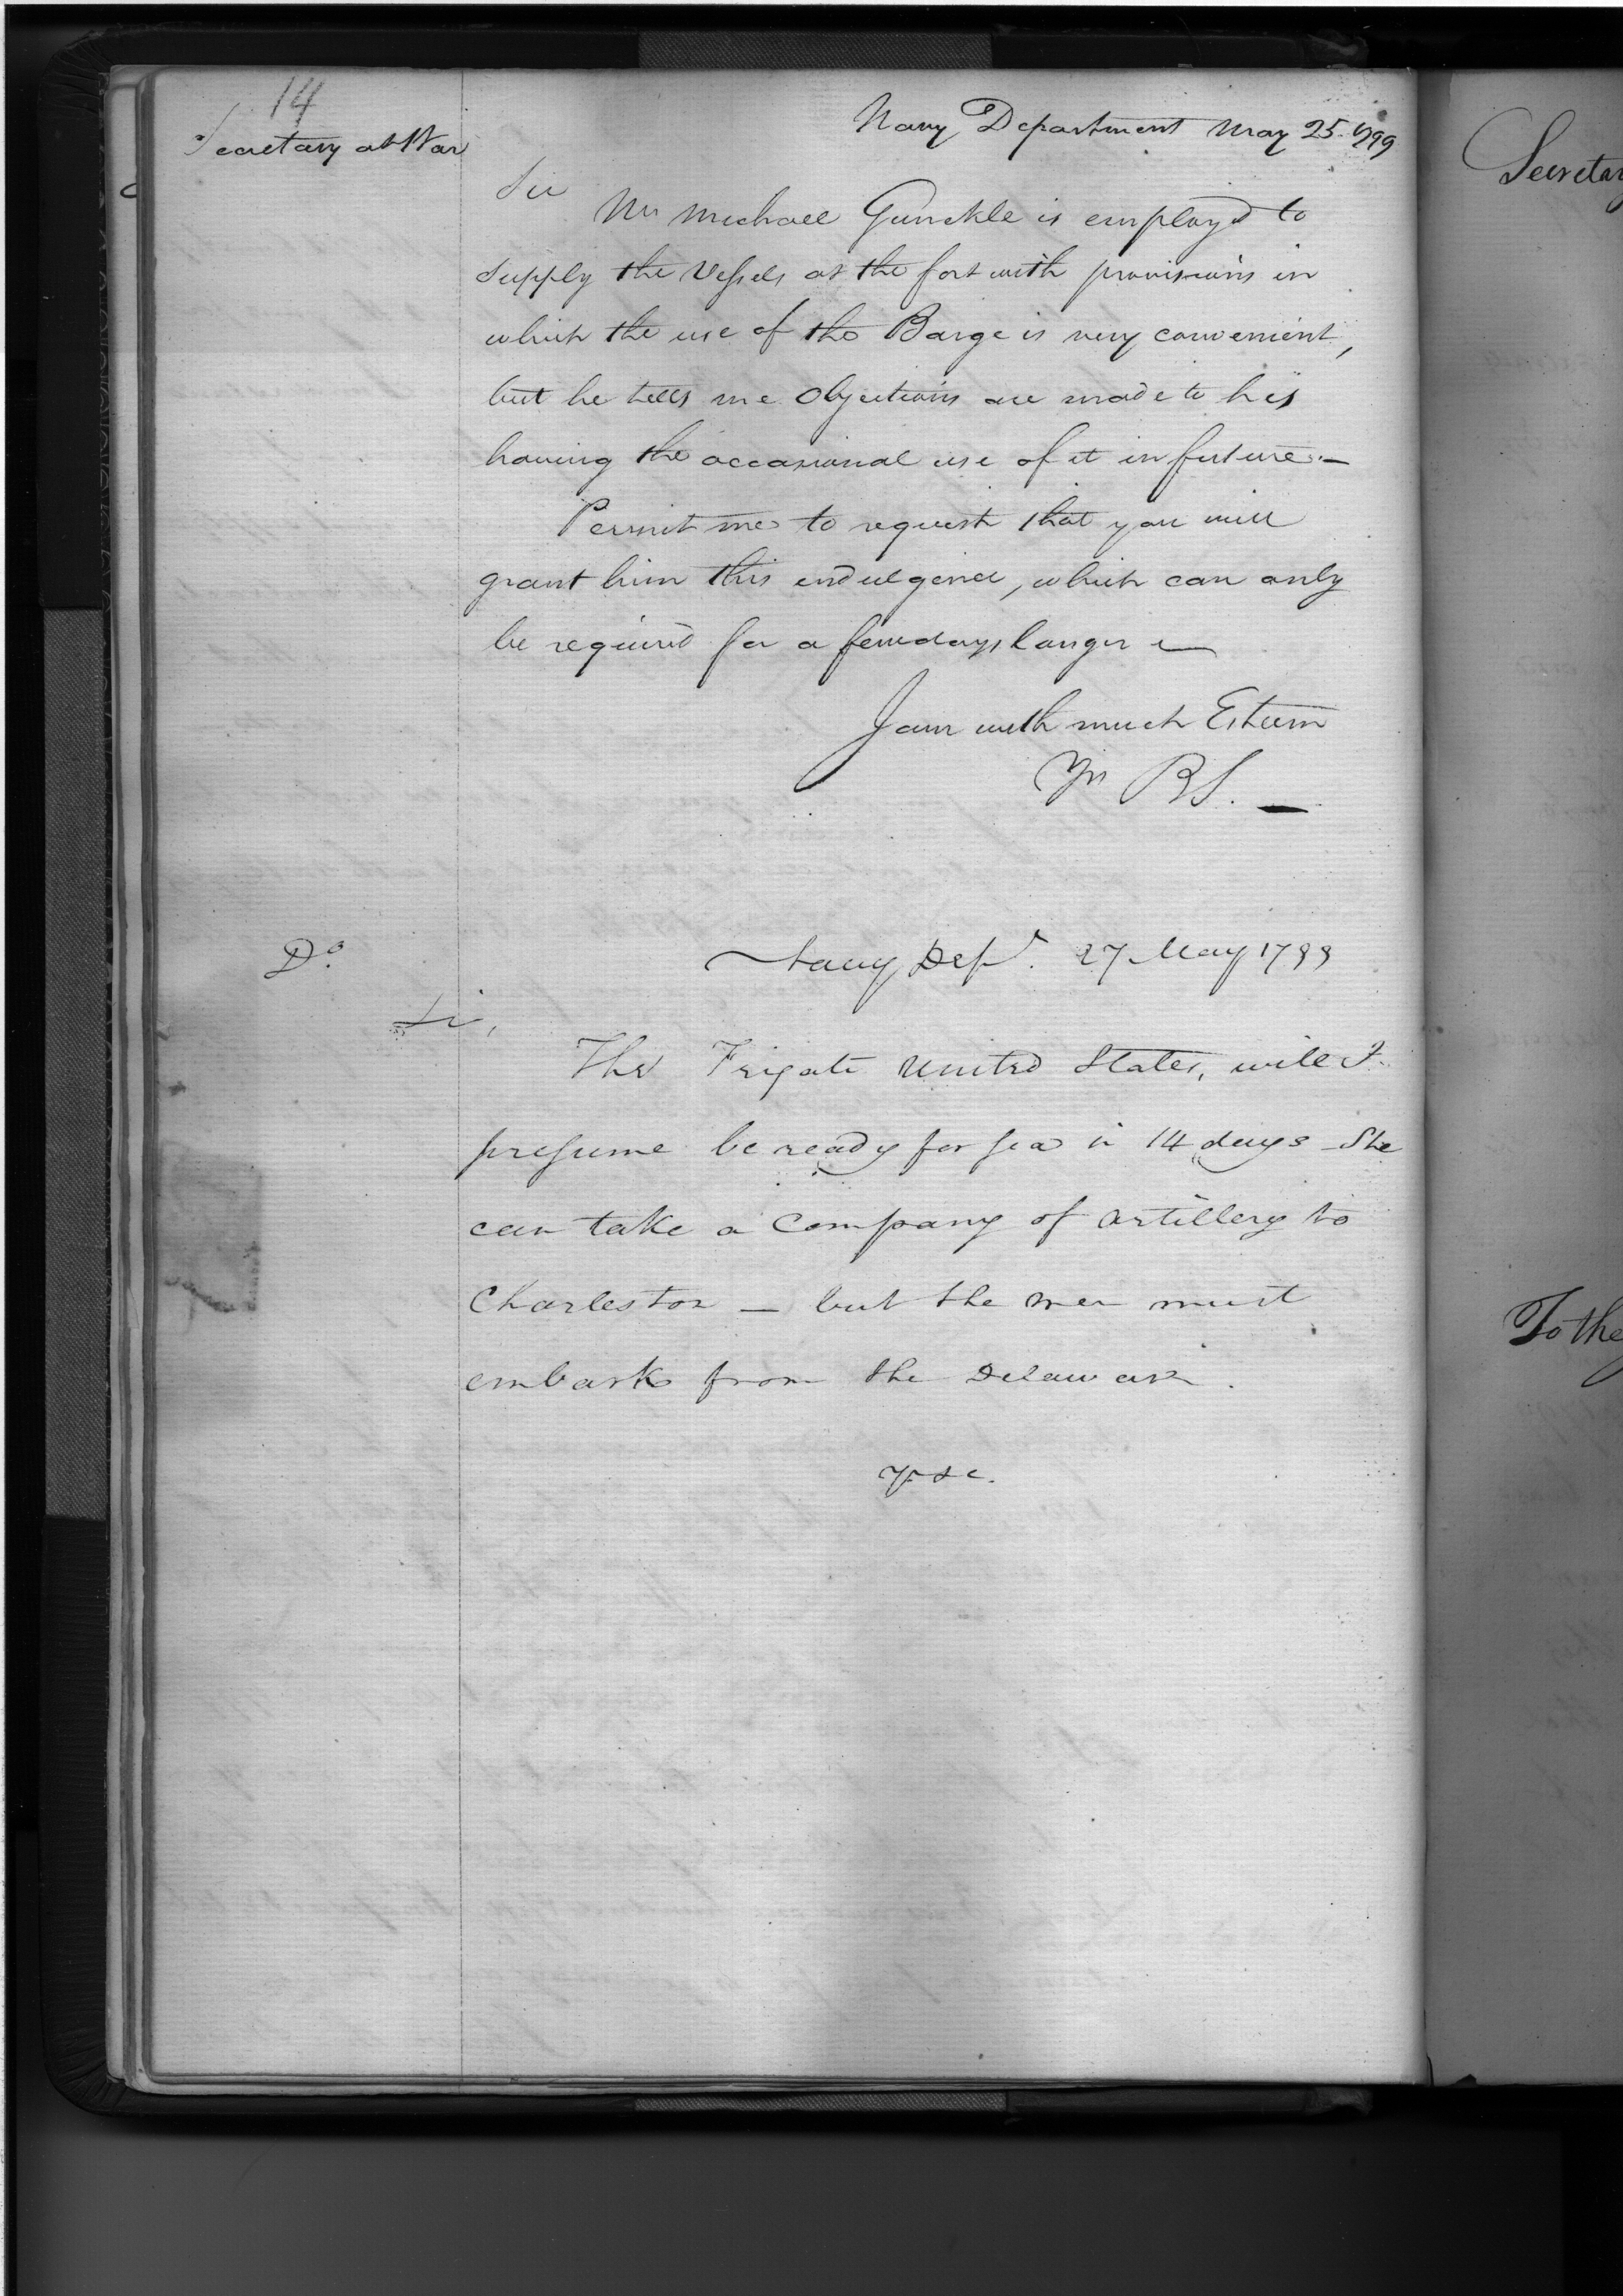 14
Secretary at War
Navy Department May 25. 1799
Sir
Mr Michael Gunckle is employd to
supply the Vessels at the fort with provisions in
which the use of the Barge is very convenient,
but he tells me Objections are made to his
having the occasional use of it in future.—
Permit me to request that you will
grant him this indulgence, which can only
be required for a few days longer —
I am with much Esteem
Yrs B S. —
Do.
Navy Dept. 27 May 1799
Sir,
The Frigate United States, will I
presume be ready for sea in 14 days - She
can take a Company of Artillery to
Charleston — but the men must
embark from the Delaware.
yr &c.
Secretar
To the